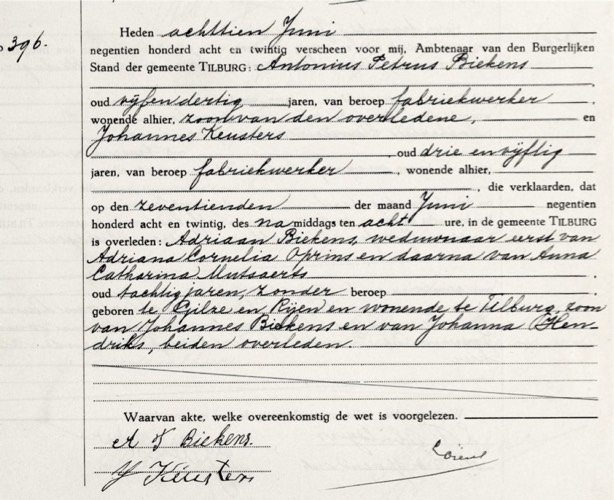 396.
Heden achttien Juni
negentien honderd acht en twintig verscheen voor mij, Ambtenaar van den Burgerlijken
Stand der gemeente TILBURG: Antonius Petrus Biekens
oud vijfendertig jaren, van beroep fabriekwerker,
wonende alhier, zoon van den overledene, en
Johannes Keusters
, oud drie en vijftig
jaren, van beroep fabriekwerker, wonende alhier,
, die verklaarden, dat
op den zeventienden der maand Juni negentien
honderd acht en twintig, des na middags ten acht ure, in de gemeente TILBURG
is overleden: Adriaan Biekens, weduwnaar eerst van
Adriana Cornelia Oprins en daarna van Anna
Catharina Mutsaerts
oud tachtig jaren, zonder beroep
geboren te Gilze en Rijen en wonende te Tilburg, zoon
van Johannes Biekens en van Johanna Hen-
driks, beiden overleden.
Waarvan akte, welke overeenkomstig de wet is voorgelezen.
A P Biekens.
J Keusters